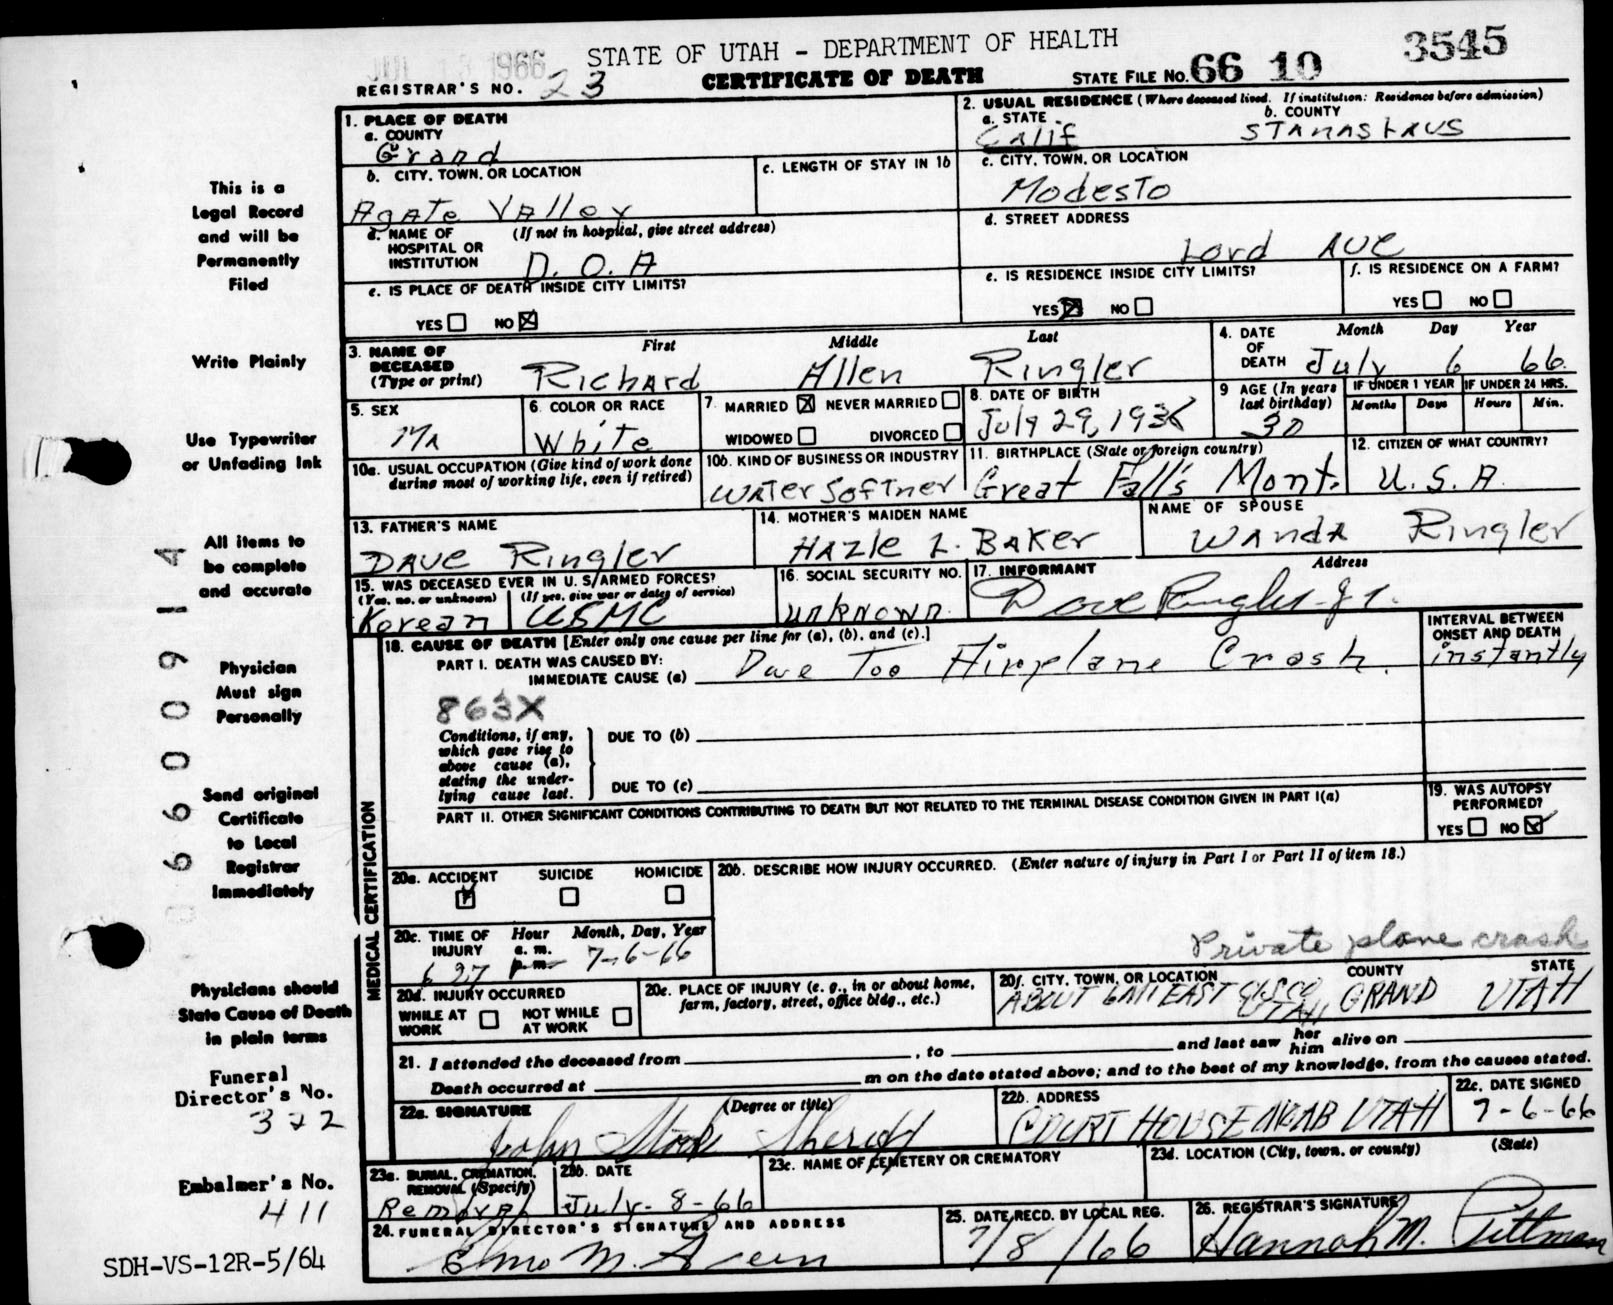 JUL 13 1966
STATE OF UTAH - DEPARTMENT OF HEALTH
3545
REGISTRAR'S NO. 23
CERTIFICATE OF DEATH
STATE FILE NO. 66 10
This is a
Legal Record
and will be
Permanently
Filed
Write Plainly
Use Typewriter
or Unfading Ink
All items to
be complete
and accurate
Physician
Must sign
Personally
Send original
Certificate
to Local
Registrar
Immediately
Physicians should
State Cause of Death
in plain terms
Funeral
Director's No.
322
Embalmer's No.
411
SDH-VS-12R-5/64
1. PLACE OF DEATH
a. COUNTY
Grand
2. USUAL RESIDENCE (Where deceased lived. If institution: Residence before admission)
a. STATE b. COUNTY
Calif STANASLAUS
b. CITY, TOWN, OR LOCATION
Agate Valley
c. LENGTH OF STAY IN 1b
c. CITY, TOWN, OR LOCATION
Modesto
d. NAME OF HOSPITAL OR INSTITUTION (If not in hospital, give street address)
D.O.A
d. STREET ADDRESS
Lord Ave
e. IS PLACE OF DEATH INSIDE CITY LIMITS?
YES NO
e. IS RESIDENCE INSIDE CITY LIMITS?
YES NO
f. IS RESIDENCE ON A FARM?
YES NO
3. NAME OF DECEASED (Type or print)
First Middle Last
Richard Allen Ringler
4. DATE OF DEATH Month Day Year
July 6 66
5. SEX
Ma
6. COLOR OR RACE
White
7. MARRIED NEVER MARRIED
WIDOWED DIVORCED
8. DATE OF BIRTH
July 29, 1936
9 AGE (In years last birthday)
30
IF UNDER 1 YEAR IF UNDER 24 HRS.
Months Days Hours Min.
10a. USUAL OCCUPATION (Give kind of work done during most of working life, even if retired)
10b. KIND OF BUSINESS OR INDUSTRY
Water Softner
11. BIRTHPLACE (State or foreign country)
Great Fall's Mont.
12. CITIZEN OF WHAT COUNTRY?
U.S.A.
13. FATHER'S NAME
Dave Ringler
14. MOTHER'S MAIDEN NAME
Hazle L. Baker
NAME OF SPOUSE
Wanda Ringler
15. WAS DECEASED EVER IN U.S. ARMED FORCES?
(Yes, no, or unknown) (If yes, give war or dates of service)
Korean USMC
16. SOCIAL SECURITY NO.
unknown.
17. INFORMANT Address
Dave Ringler Jr.
18. CAUSE OF DEATH [Enter only one cause per line for (a), (b), and (c).]
PART I. DEATH WAS CAUSED BY:
IMMEDIATE CAUSE (a) Due Too Airplane Crash.
INTERVAL BETWEEN ONSET AND DEATH
instantly
863X
Conditions, if any, which gave rise to above cause (a), stating the underlying cause last.
DUE TO (b)
DUE TO (c)
PART II. OTHER SIGNIFICANT CONDITIONS CONTRIBUTING TO DEATH BUT NOT RELATED TO THE TERMINAL DISEASE CONDITION GIVEN IN PART I(a)
19. WAS AUTOPSY PERFORMED?
YES NO
MEDICAL CERTIFICATION
20a. ACCIDENT SUICIDE HOMICIDE
20b. DESCRIBE HOW INJURY OCCURRED. (Enter nature of injury in Part I or Part II of item 18.)
Private plane crash
20c. TIME OF INJURY Hour Month, Day, Year
a. m.
p. m.
6 27 7-6-66
20d. INJURY OCCURRED
WHILE AT WORK NOT WHILE AT WORK
20e. PLACE OF INJURY (e. g., in or about home, farm, factory, street, office bldg., etc.)
20f. CITY, TOWN, OR LOCATION COUNTY STATE
ABOUT 6 MI EAST CISCO UTAH GRAND UTAH
21. I attended the deceased from , to and last saw her him alive on
Death occurred at m on the date stated above; and to the best of my knowledge, from the causes stated.
22a. SIGNATURE (Degree or title)
John Stock Sheriff
22b. ADDRESS
COURT HOUSE MOAB UTAH
22c. DATE SIGNED
7-6-66
23a. BURIAL, CREMATION, REMOVAL (Specify)
Removal
23b. DATE
July-8-66
23c. NAME OF CEMETERY OR CREMATORY
23d. LOCATION (City, town, or county) (State)
24. FUNERAL DIRECTOR'S SIGNATURE AND ADDRESS
Elmo M.
25. DATE RECD. BY LOCAL REG.
7/8/66
26. REGISTRAR'S SIGNATURE
Hannah M. Pittman
660091 4